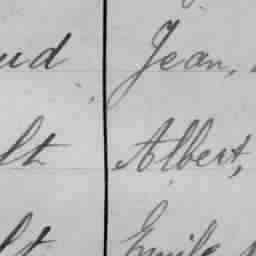 ud Jean,
lt Albert,
lt Emile